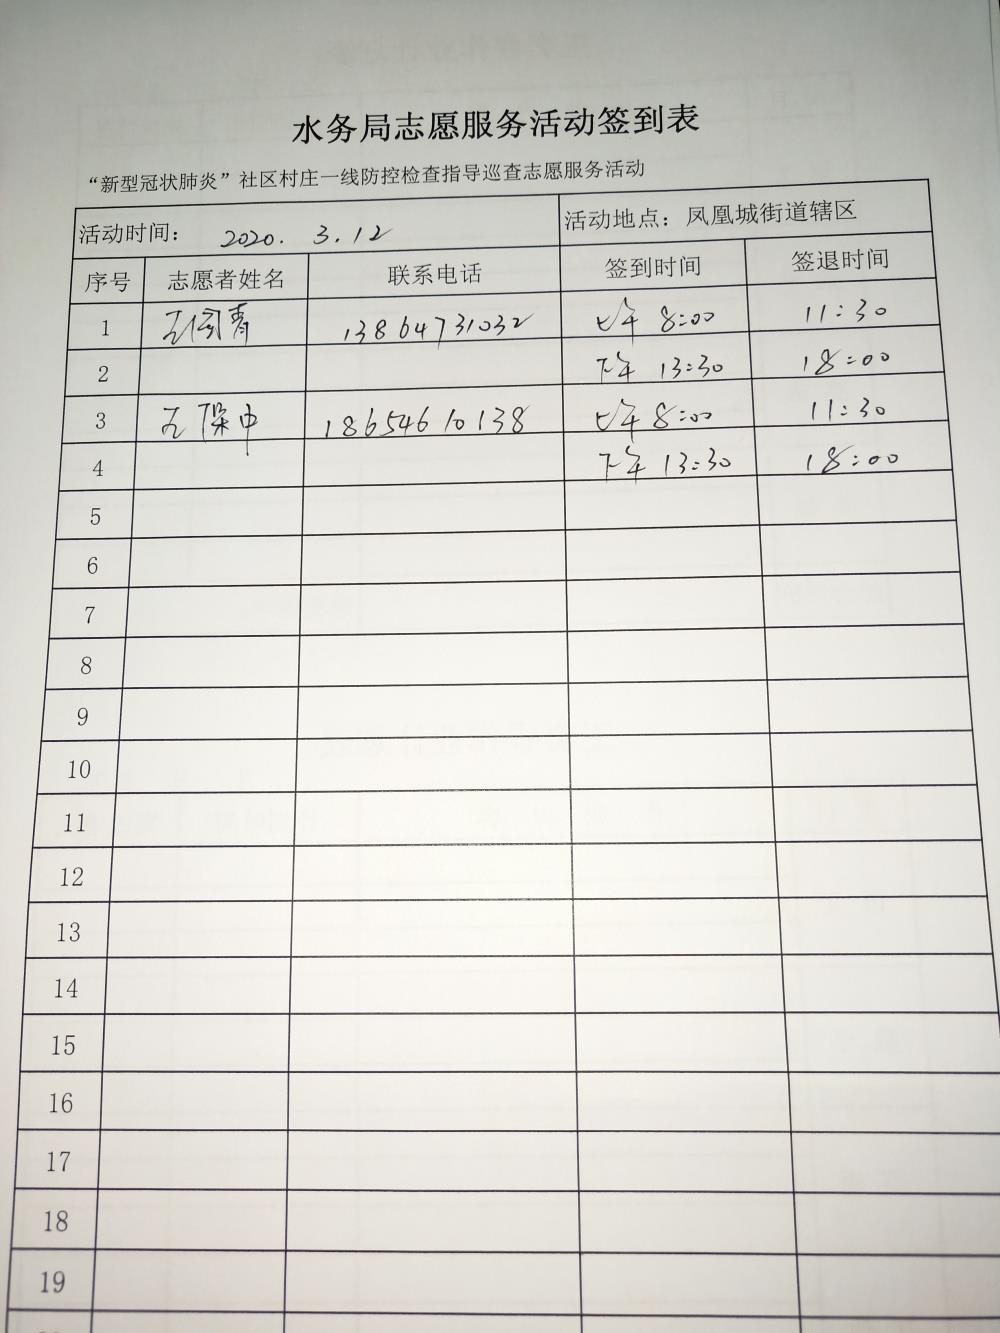 水务局志愿服务活动签到表
“新型冠状肺炎”社区村庄一线防控检查指导巡查志愿服务活动
活动时间： 2020. 3.12 活动地点：凤凰城街道辖区
序号 志愿者姓名 联系电话 签到时间 签退时间
1 13864731032 上午 8:00 11:30
2 下午 13:30 18:00
3 18654610138 上午 8:00 11:30
4 下午 13:30 18:00
5
6
7
8
9
10
11
12
13
14
15
16
17
18
19